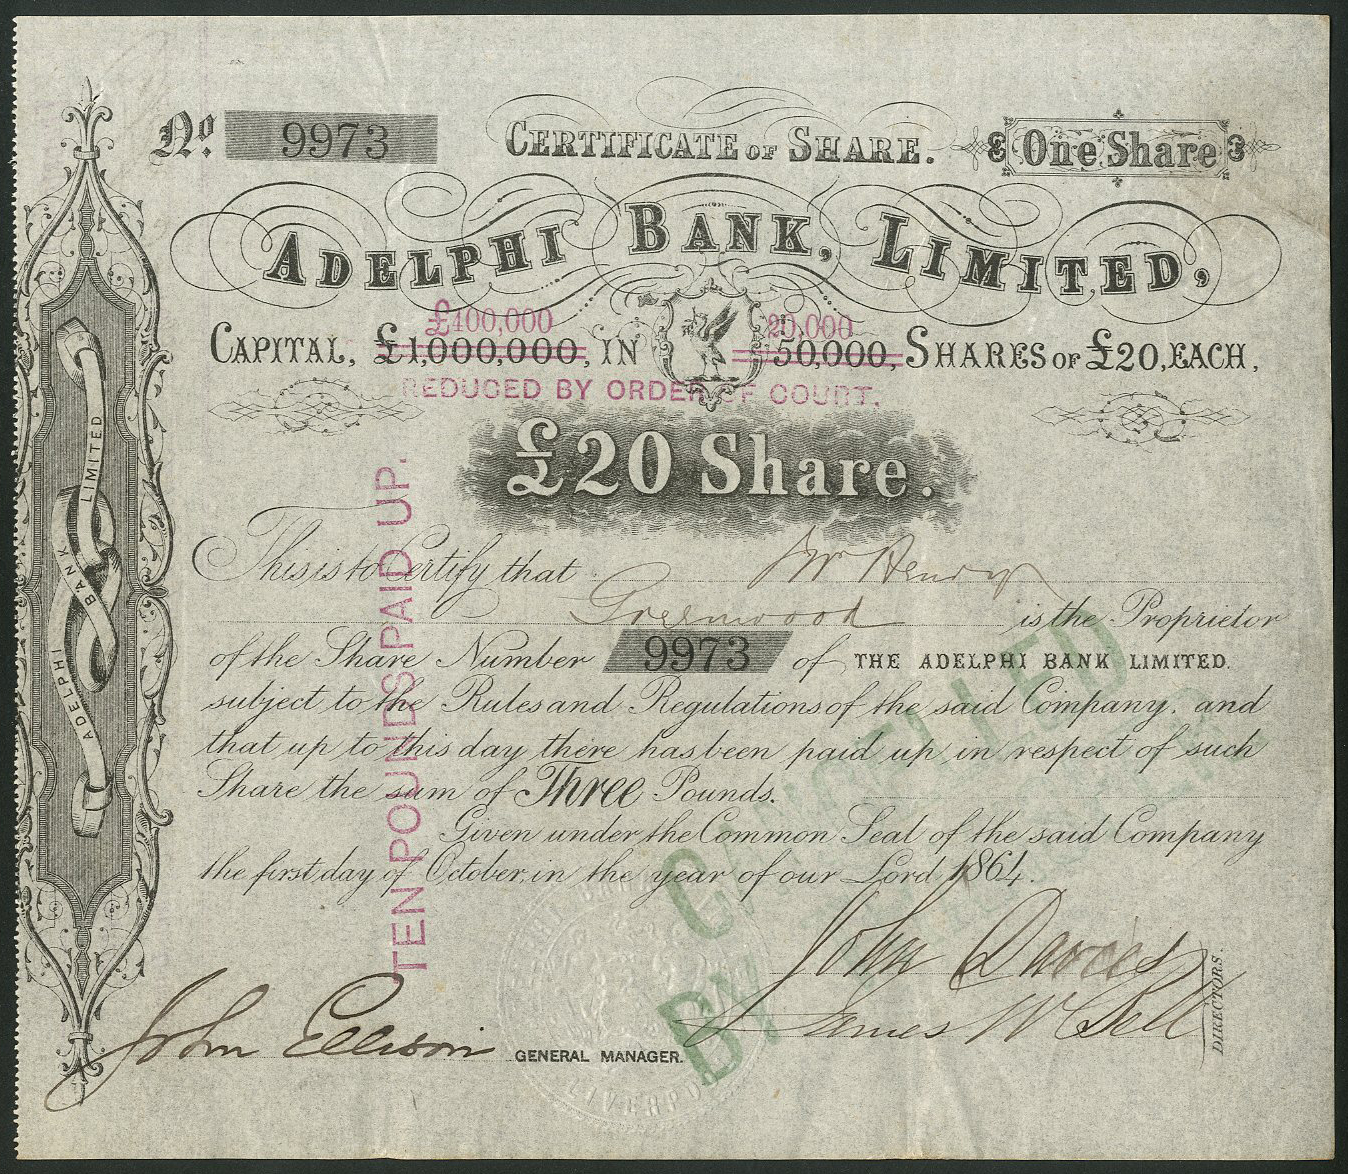 No. 9973 CERTIFICATE OF SHARE. One Share
ADELPHI BANK, LIMITED,
£400,000 20,000
CAPITAL, £1,000,000, IN 50,000, SHARES OF £20, EACH,
REDUCED BY ORDER OF COURT.
£20 Share.
This is to Certify that Mr Henry
Greenwood is the Proprietor
of the Share Number 9973 of THE ADELPHI BANK LIMITED.
subject to the Rules and Regulations of the said Company, and
that up to this day there has been paid up in respect of such
Share the sum of Three Pounds.
Given under the Common Seal of the said Company
the first day of October, in the year of our Lord 1864.
John
James W Bell
DIRECTORS.
John Ellison GENERAL MANAGER.
TEN POUNDS PAID UP.
CANCELLED
BY
ADELPHI BANK LIMITED
LIVERPO